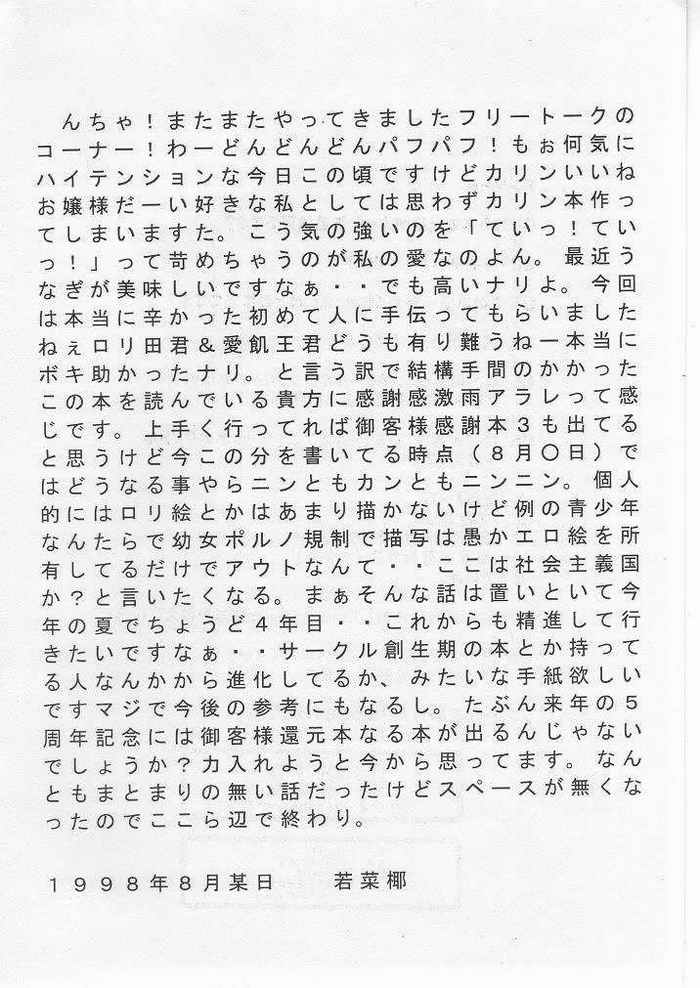 んちゃ！またまたやってきましたフリートークの
コーナー！わーどんどんどんパフパフ！もぉ何気に
ハイテンションな今日この頃ですけどカリンいいね
お嬢様だーい好きな私としては思わずカリン本作っ
てしまいますた。こう気の強いのを「ていっ！てい
っ！」って苛めちゃうのが私の愛なのよん。最近う
なぎが美味しいですなぁ・・でも高いナリよ。今回
は本当に辛かった初めて人に手伝ってもらいました
ねぇロリ田君＆愛飢王君どうも有り難うね一本当に
ボキ助かったナリ。と言う訳で結構手間のかかった
この本を読んでいる貴方に感謝感激雨アラレって感
じです。上手く行ってれば御客様感謝本３も出てる
と思うけど今この分を書いてる時点（８月〇日）で
はどうなる事やらニンともカンともニンニン。個人
的にはロリ絵とかはあまり描かないけど例の青少年
なんたらで幼女ポルノ規制で描写は愚かエロ絵を所
有してるだけでアウトなんて・・ここは社会主義国
か？と言いたくなる。まぁそんな話は置いといて今
年の夏でちょうど４年目・・これからも精進して行
きたいですなぁ・・サークル創生期の本とか持って
る人なんかから進化してるか、みたいな手紙欲しい
ですマジで今後の参考にもなるし。たぶん来年の５
周年記念には御客様還元本なる本が出るんじゃない
でしょうか？力入れようと今から思ってます。なん
ともまとまりの無い話だったけどスペースが無くな
ったのでここら辺で終わり。
１９９８年８月某日　　若菜椰